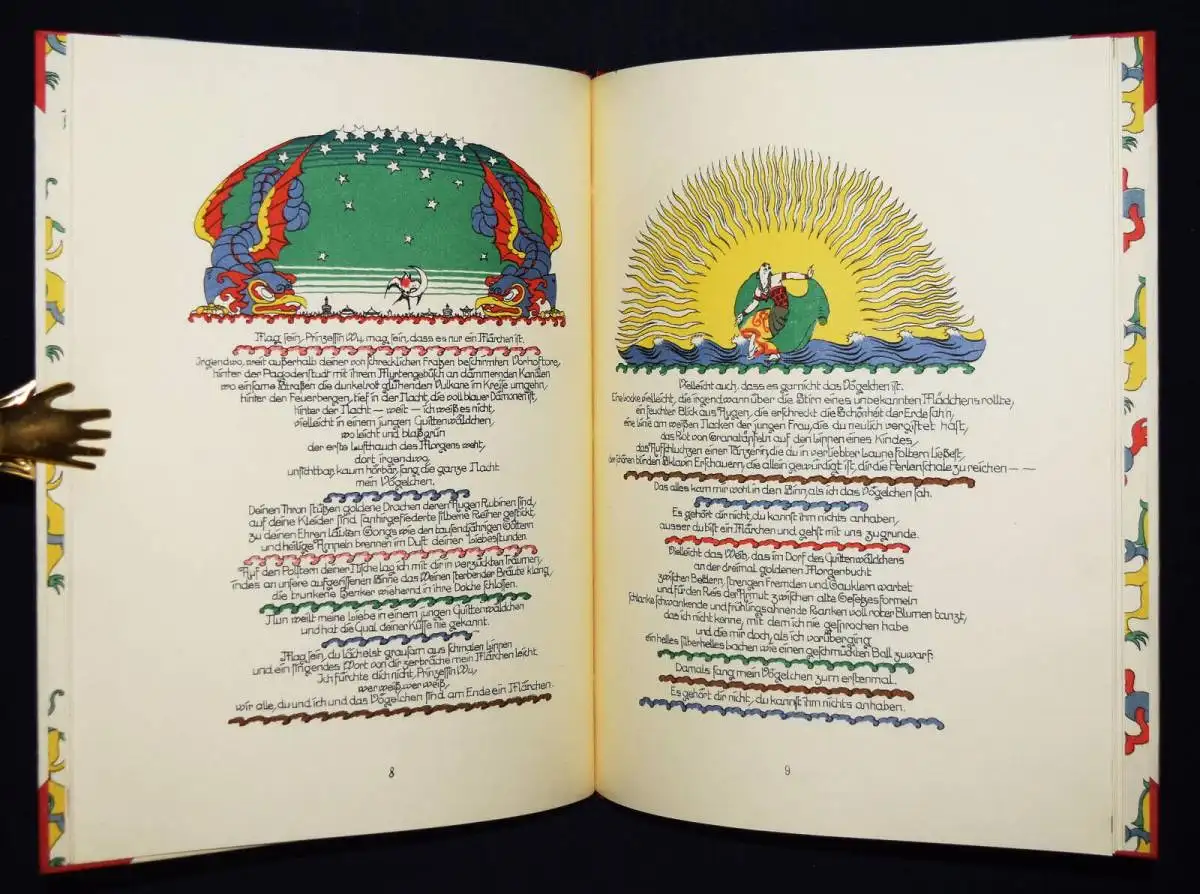 Mag sein, Prinzessin Wu, mag sein, dass es nur ein Märchen ist.
Irgendwo, weit außerhalb deiner von schrecklichen Fratzen beschirmten Vorhoftore,
hinter der Pagodenstadt mit ihrem Myrtengebüsch an dämmernden Kanälen
wo einsame Straßen die dunkelrot glühenden Vulkane im Kreise umgehn,
hinter den Feuerbergen, tief in der Nacht, die voll blauer Dämonen ist,
hinter der Nacht — weit — ich weiß es nicht,
vielleicht in einem jungen Quittenwäldchen,
wo leicht und blaßgrün
der erste Lufthauch des Morgens weht,
dort irgendwo,
unsichtbar, kaum hörbar, sang die ganze Nacht
mein Vögelchen.
Deinen Thron stützen goldene Drachen deren Augen Rubinen sind,
auf deine Kleider sind sanftgefiederte silberne Reiher gestickt,
zu deinen Ehren läuten Gongs wie den tausendjährigen Göttern
und heilige Ampeln brennen im Duft deiner Liebesstunden
Auf den Polstern deiner Nische lag ich mit dir in verzückten Träumen,
indes an unsere aufgerissenen Sinne das Weinen sterbender Bräute klang,
die trunkene Henker wiehernd in ihre Dolche schlossen.
Nun weilt meine Liebe in einem jungen Quittenwäldchen
und hat die Qual deiner Küsse nie gekannt.
Mag sein, du lächelst grausam aus schmalen Linnen
und ein singendes Wort von dir zerbräche mein Märchen leicht.
Ich fürchte dich nicht, Prinzessin Wu,
wer weiß, wer weiß,
wir alle, du und ich und das Vögelchen sind am Ende ein Märchen.
8
Vielleicht auch, dass es garnicht das Vögelchen ist.
Eine Locke vielleicht, die irgendwann über die Stirn eines unbekannten Mädchens rollte,
ein feuchter Blick aus Augen, die erschreckt die Schönheit der Erde sah'n,
eine Linie am weißen Nacken der jungen Frau, die du neulich vergiftet hast,
das Rot von Granatäpfeln auf den Linnen eines Kindes,
das Aufschluchzen einer Tänzerin, die du in verliebter Laune foltern ließest,
der schönen blinden Sklavin Erschauern, die allein gewürdigt ist, dir die Perlenschale zu reichen — —
Das alles kam mir wohl in den Sinn, als ich das Vögelchen sah.
Es gehört dir nicht, du kannst ihm nichts anhaben,
ausser du bist ein Märchen und gehst mit uns zugrunde.
Vielleicht das Weib, das im Dorf des Quittenwäldchens
an der dreimal goldenen Morgenbucht
zwischen Bettlern, strengen Fremden und Gauklern wartet
und für den Reis der Armut zwischen alte Gesetzesformeln
schlanke schwankende und frühlingsahnende Ranken voll roter Blumen tanzt,
das ich nicht kenne, mit dem ich nie gesprochen habe
und die mir doch, als ich vorüberging
ein helles silberhelles Lachen wie einen geschmückten Ball zuwarf.
Damals sang mein Vögelchen zum erstenmal.
Es gehört dir nicht, du kannst ihm nichts anhaben.
9